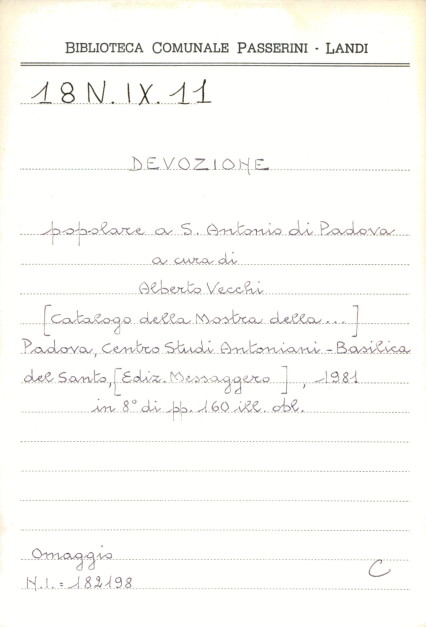 BIBLIOTECA COMUNALE PASSERINI - LANDI
18 N. IX. 11
DEVOZIONE
popolare a S. Antonio di Padova
a cura di
Alberto Vecchi
[Catalogo della Mostra della ... ]
Padova, Centro Studi Antoniani - Basilica
del Santo, [Ediz. Messaggero ] , 1981
in 8° di pp. 160 ill. obl.
Omaggio
C
N.I. = 182198